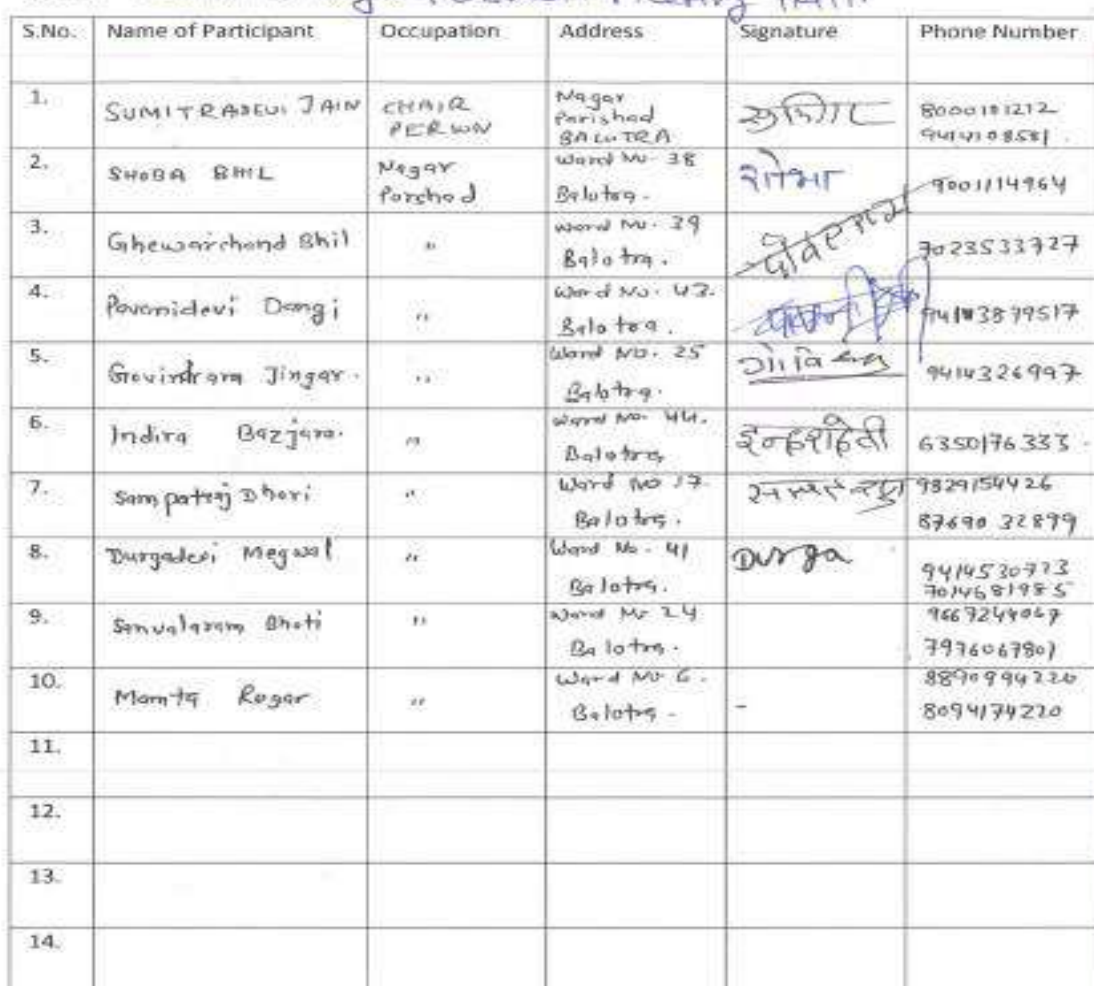 Meeting
S.No. Name of Participant Occupation Address Signature Phone Number
1. SUMITRADEVI JAIN CHAIR PERSON Nagar Parishad BALOTRA 8000101212
2. SHOBA BHIL Nagar Parshad Ward No. 38 Balotra. शोभा 9001114964
3. Ghewarchand Bhil " Ward No. 39 Balotra. 7023533727
4. Pavanidevi Dangi " Ward No. 43. Balotra.
5. Govindram Jingar. " Ward No. 25 Balotra. 9414326997
6. Indira Bazjara. " Ward No. 44. Balotra 6350176333.
7. Sampatraj Dhori " Ward No 17. Balotra. 9829154426
87690 32899
8. Durgadevi Megwal " Ward No. 41 Balotra. Durga 9414530723
7014681985
9. Sanvalaram Bhati " Ward No 24 Balotra.
7976067807
10. Mamta Regar " Ward No 6. Balotra - - 8890994220
8094174220
11.
12.
13.
14.